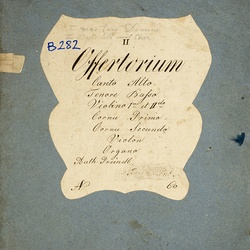 B.282
II
Offertorium
Canto Alto
Tenore Basso
Violino 1mo et IIdo
Cornu Primo
Cornu Secundo
Violon
Organo
Auth. Preindl.
No 60